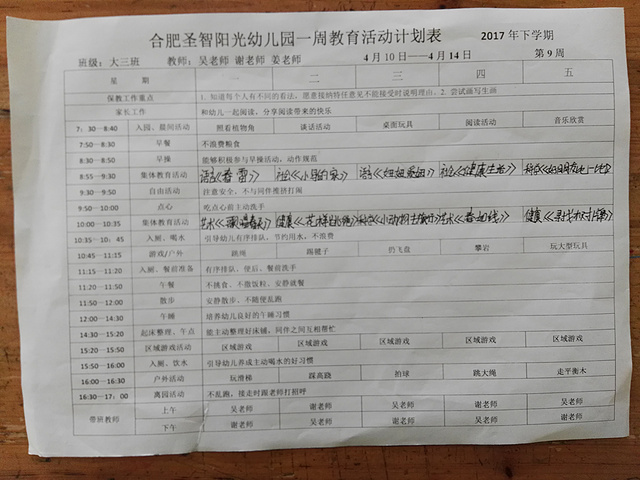 合肥圣智阳光幼儿园一周教育活动计划表 2017 年下学期
班级：大三班 教师：吴老师 谢老师 姜老师 4 月 10 日——4 月 14 日 第 9 周
星 期 一 二 三 四 五
保教工作重点 1、知道每个人有不同的看法，愿意接纳 意见不能接受时说明理由。2、尝试 写生画
家长工作 和幼儿一起阅读，分享阅读带来的快乐
7：30—8:40 入园、晨间活动 照看植物角 谈话活动 桌面玩具 阅读活动 音乐欣赏
7:50—8:30 早餐 不浪费粮食
8:30—8:50 早操 能够积极参与早操活动，动作规范
8:55—9:30 集体教育活动 语言《春雷》 社会《 的家》 语言 社会《健康生活》
9:30—9:50 自由活动 注意安全，不与同伴推挤打闹
9:50—10:00 点心 吃点心前主动洗手
10:00—10:35 集体教育活动 艺术 健康 艺术 健康
10:35—10：45 入厕、喝水 引导幼儿有序排队，节约用水，不浪费
10:45—11:15 游戏/户外 跳绳 踢毽子 扔飞盘 攀岩 玩大型玩具
11:15—11:20 入厕、餐前准备 有序排队、便后、餐前洗手
11:20—11:50 午餐 不挑食、不撒饭粒、安静就餐
11:50—12:00 散步 安静散步、不随便乱跑
12:00—14:30 午睡 培养幼儿良好的午睡习惯
14:30—15:20 起床整理、午点 能主动整理好床铺，同伴之间互相帮忙
15:20—15:50 区域游戏活动 区域游戏 区域游戏 区域游戏 区域游戏 区域游戏
15:50—16:00 入厕、饮水 引导幼儿养成主动喝水的好习惯
16:00—16:30 户外活动 玩滑梯 踩高跷 拍球 跳大绳 走平衡木
16:30—17：00 离园活动 不乱跑，接走时跟老师打招呼
带班教师 上午 吴老师 谢老师 吴老师 谢老师 吴老师
下午 谢老师 吴老师 谢老师 吴老师 谢老师